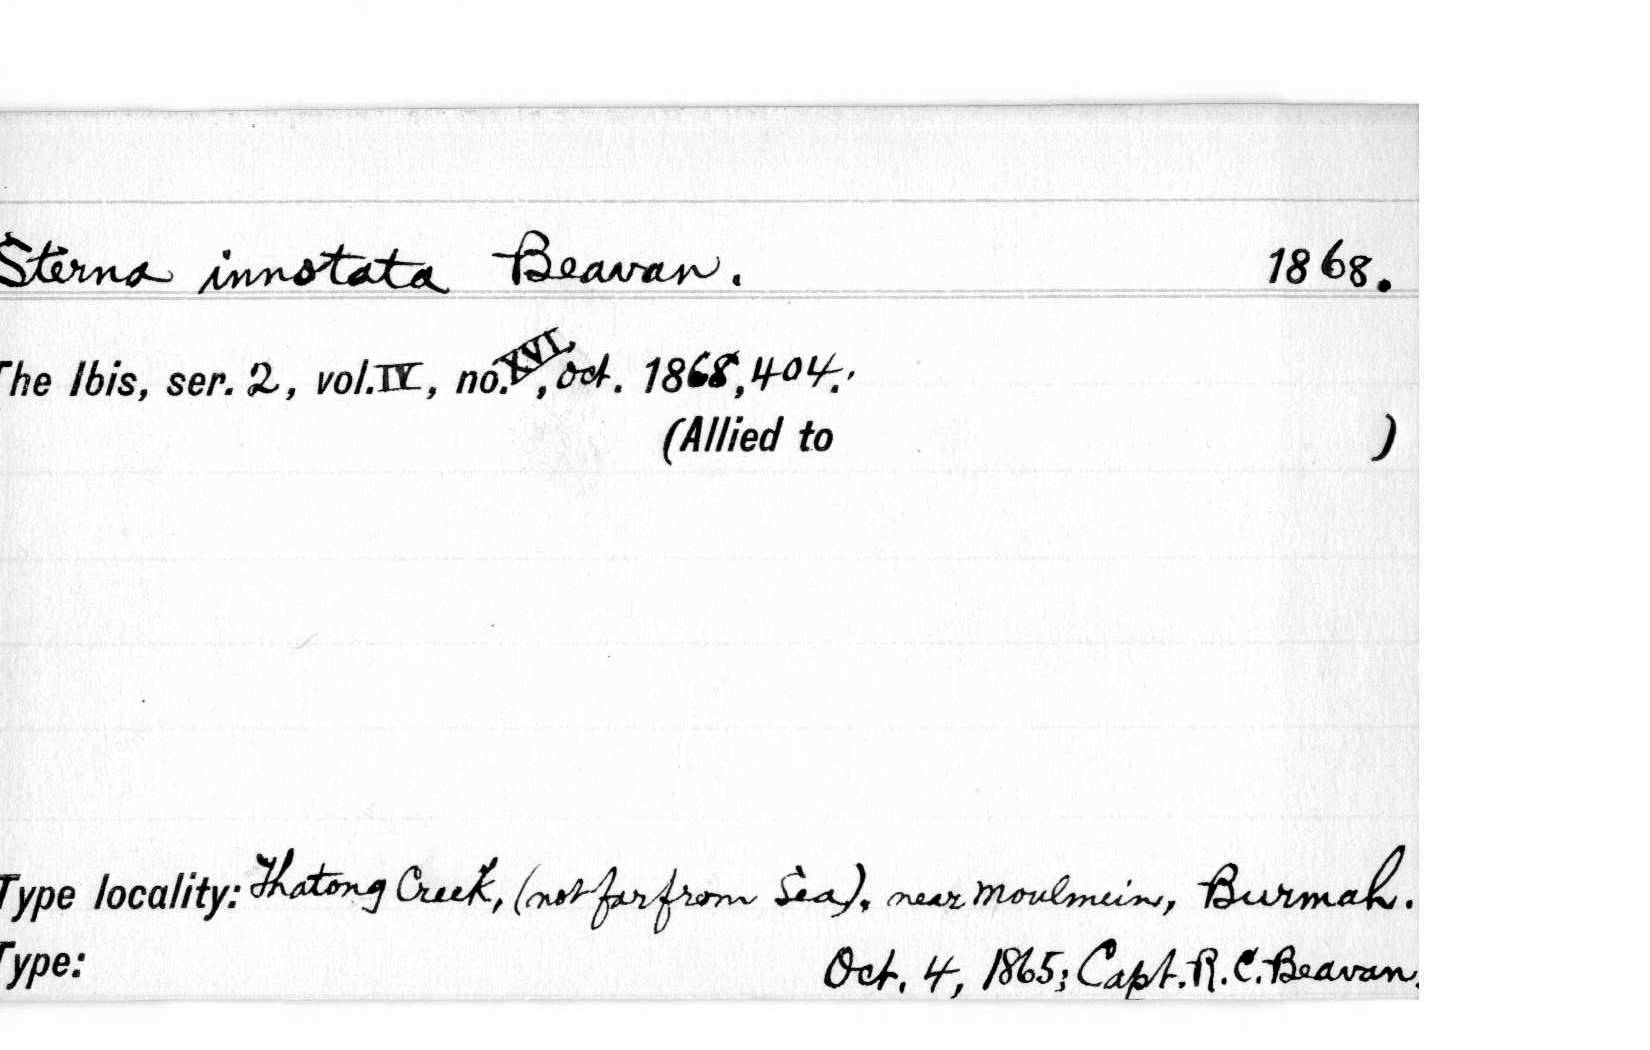 Sterna innotata Beavan. 1868.
The Ibis, ser. 2, vol. IV, no. XVI, Oct. 1868, 404.
(Allied to )
Type locality: Thatong Creek, (not far from Sea), near Moulmein, Burmah.
Type: Oct. 4, 1865; Capt. R. C. Beavan.